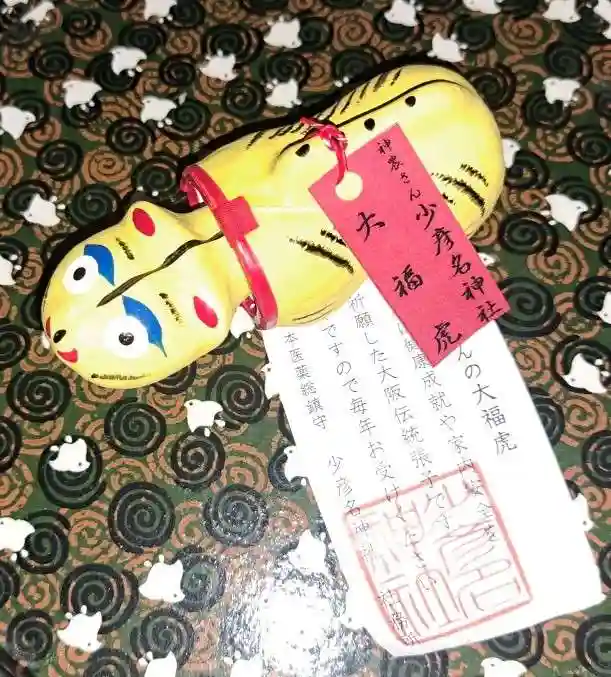 神農さん
少彦名神社
大福虎
んの大福虎
健康成就や家内安全を
祈願した大阪伝統張子です
ですので毎年お受けください
本医薬総鎮守 少彦名神社